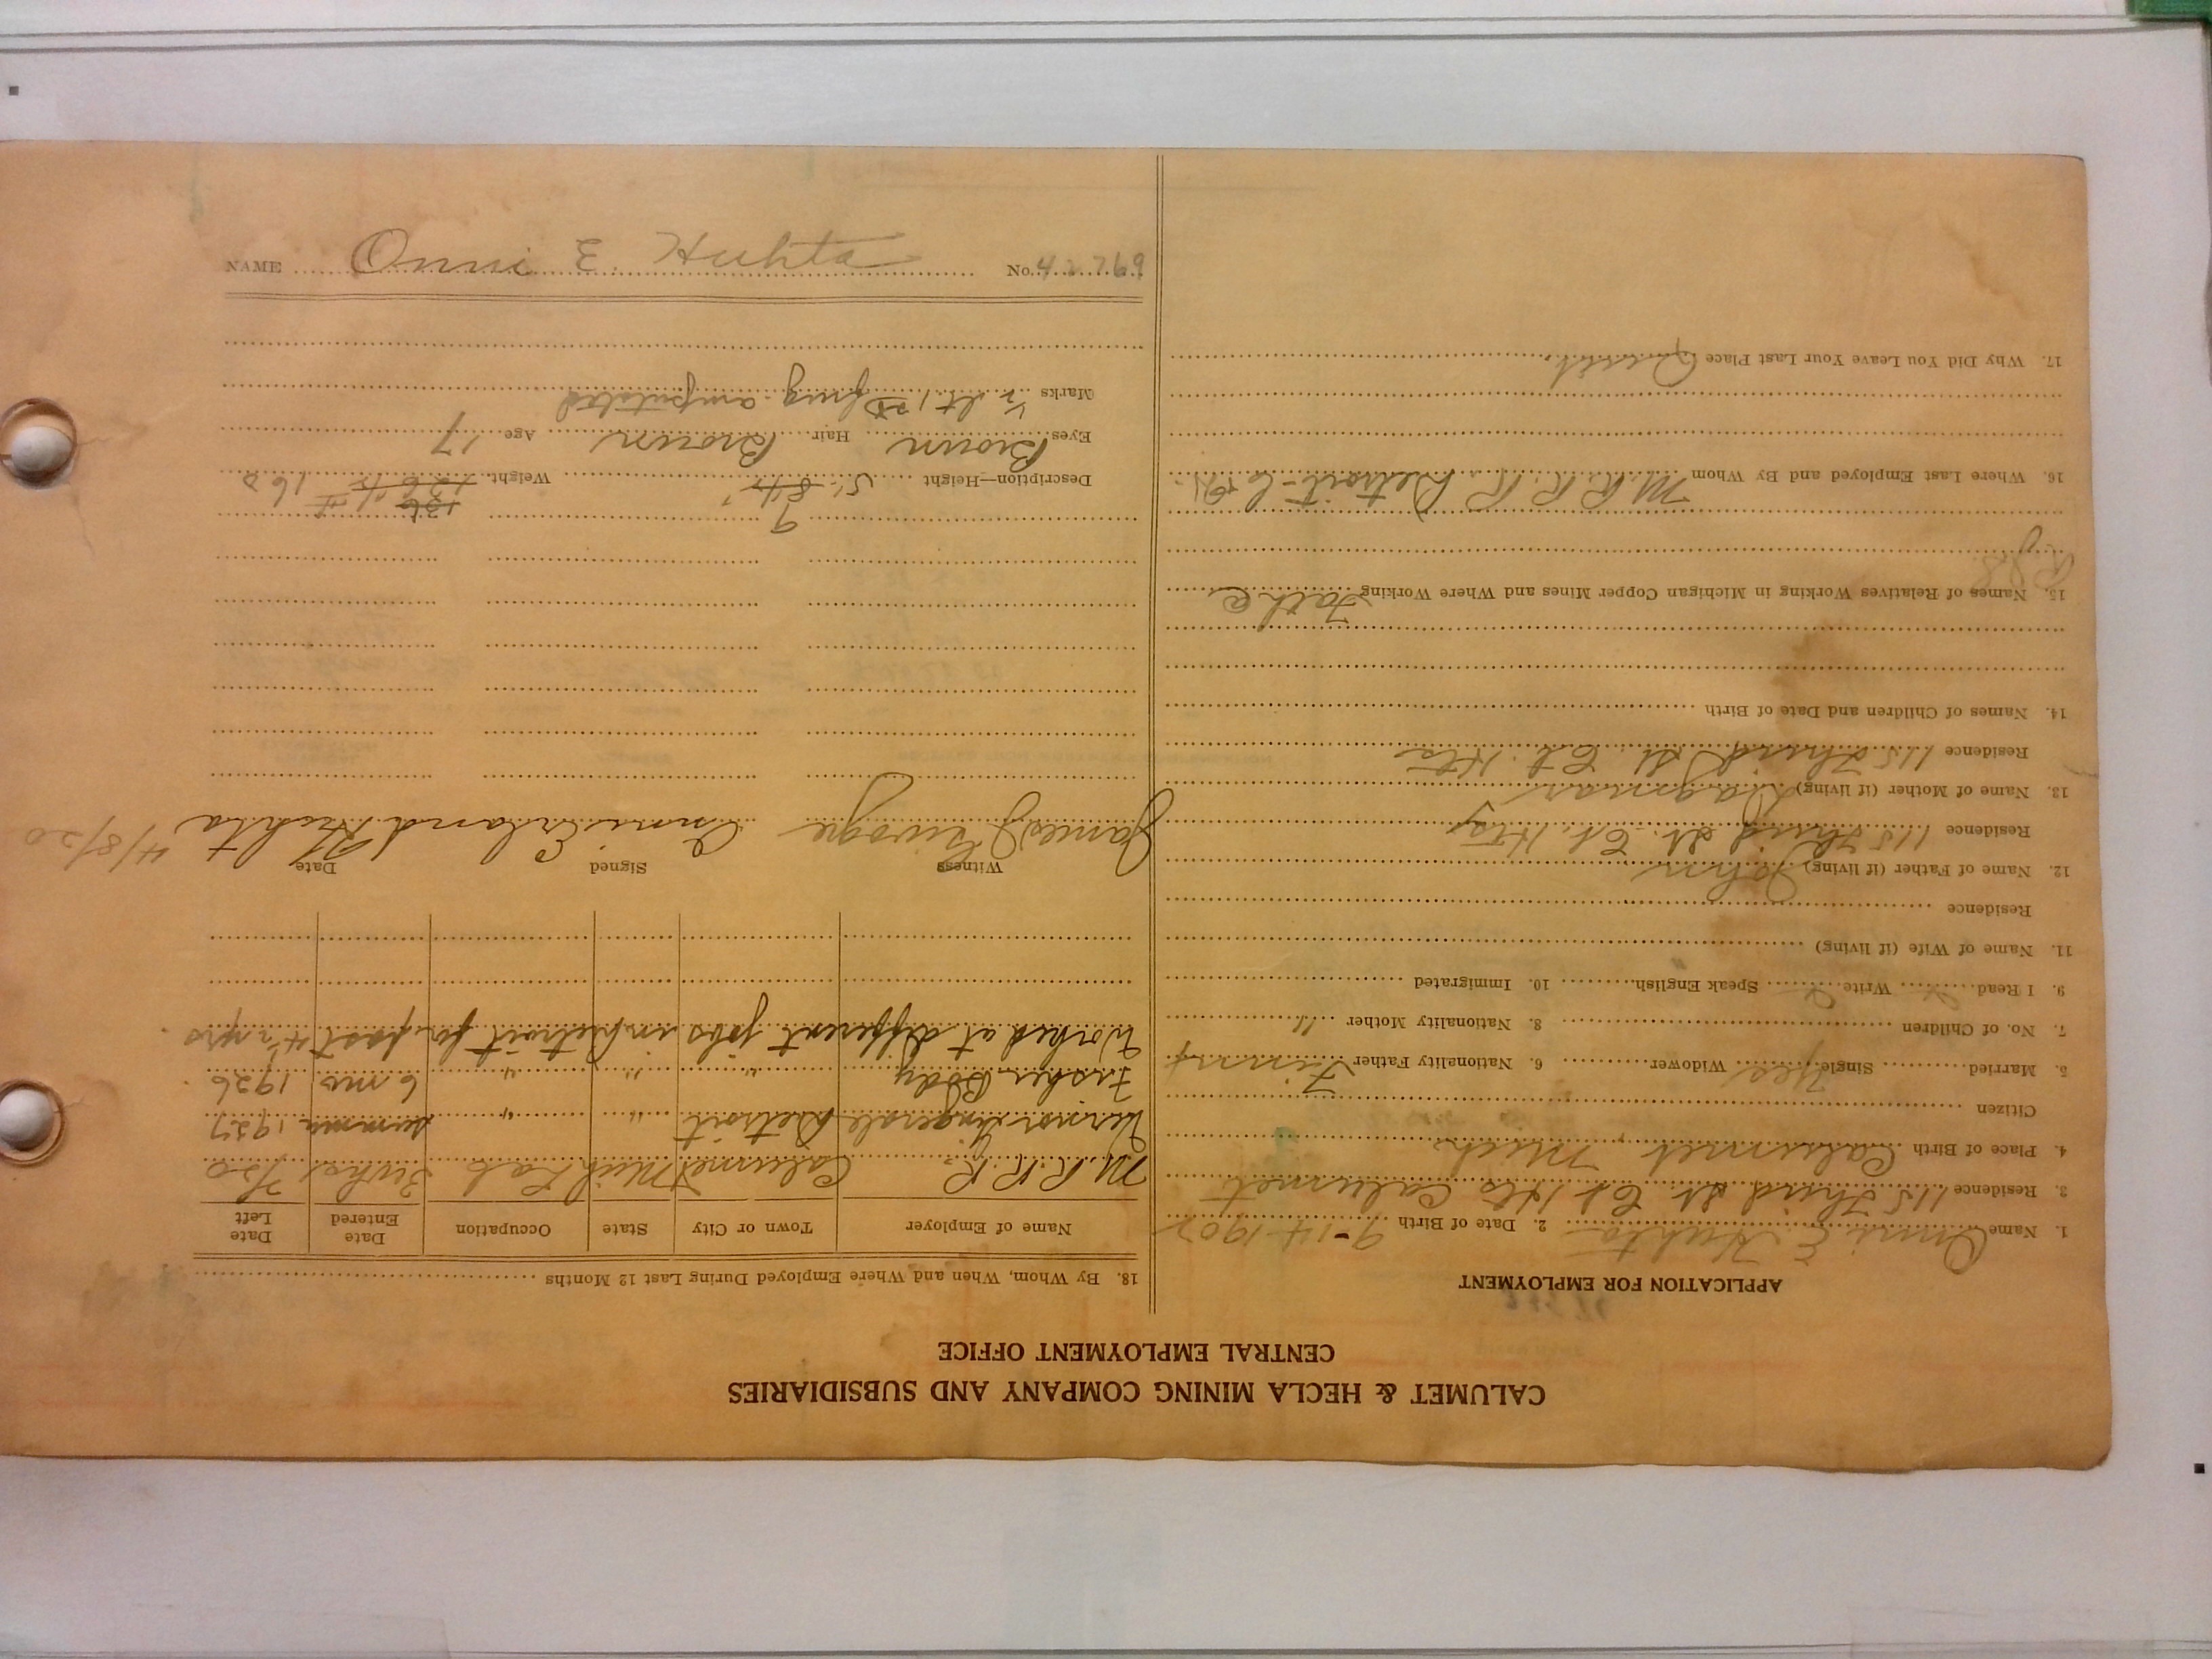 CALUMET & HECLA MINING COMPANY AND SUBSIDIARIES
CENTRAL EMPLOYMENT OFFICE
APPLICATION FOR EMPLOYMENT
1. Name Onni E. Huhta 2. Date of Birth 9-14-190
3. Residence 115 Third St. Calumet
4. Place of Birth Calumet, Mich.
Citizen
5. Married Single Yes Widower 6. Nationality Father Finn
7. No. of Children 8. Nationality Mother "
9. I Read Write Speak English 10. Immigrated
11. Name of Wife (if living)
Residence
12. Name of Father (if living) John
Residence 115 Third St.
13. Name of Mother (if living) Dagmar
Residence 115 Third St.
14. Names of Children and Date of Birth
15. Names of Relatives Working in Michigan Copper Mines and Where Working
16. Where Last Employed and By Whom M.R.R.R. Detroit
17. Why Did You Leave Your Last Place
18. By Whom, When and Where Employed During Last 12 Months
Name of Employer Town or City State Occupation Date Entered Date Left
M.R.R.R. Calumet Mich Lab 7/30
Detroit " " summer 1927
Fisher Body " " " 6 mo 1926
Worked at different jobs in Detroit for past 4½ yrs
Witness Signed Date
James Onni Erland Huhta
Description—Height 5' 8½ Weight 160
9
Eyes Brown Hair Brown Age 17
Marks ½ lt. 1st fing amputated
NAME Onni E. Huhta No. 42769